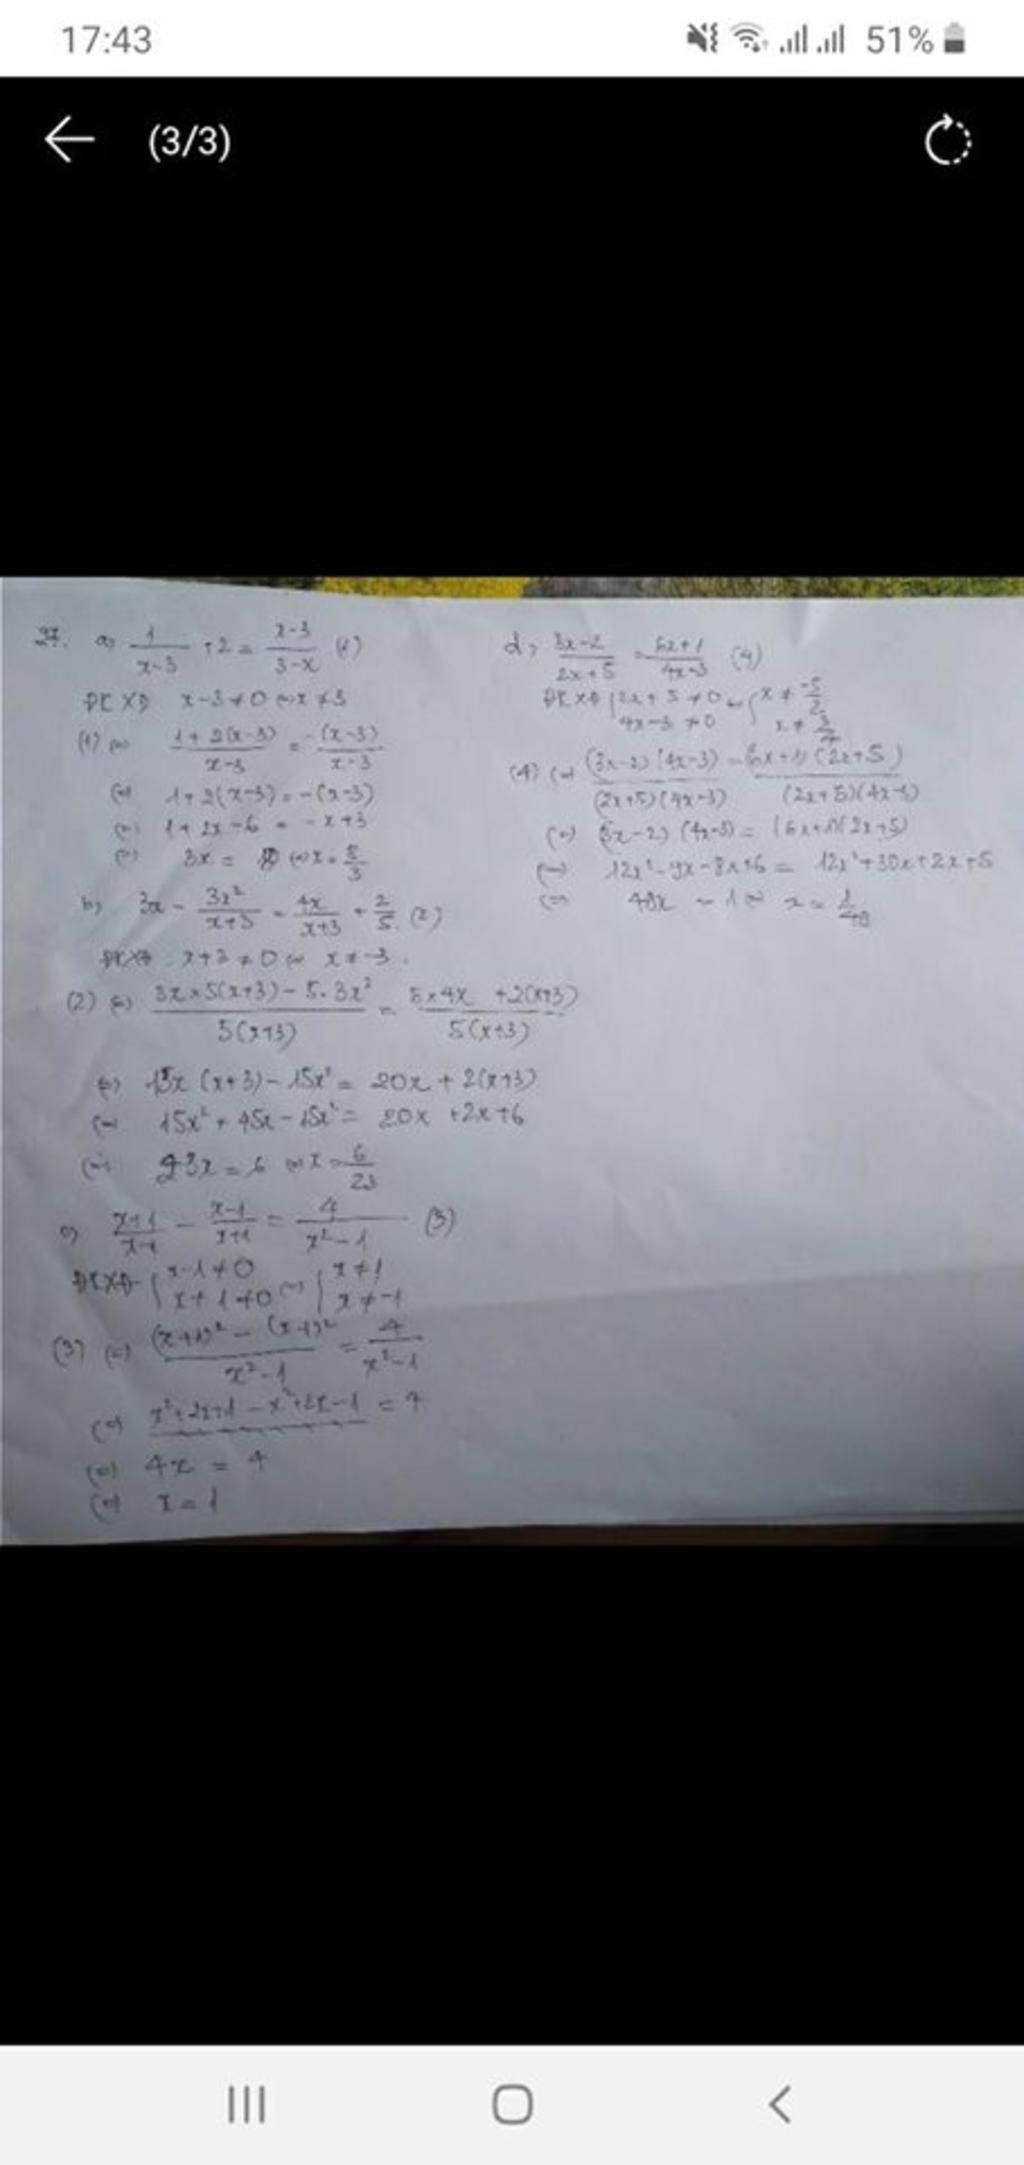 17:43 51%
(3/3)
27. a) 1/(x-3) + 2 = (x-3)/(3-x) (1)
ĐKXĐ x-3≠0 ⇔ x≠3
(1) ⇔ (1+2(x-3))/(x-3) = -(x-3)/(x-3)
⇔ 1+2(x-3) = -(x-3)
⇔ 1+2x-6 = -x+3
⇔ 3x = 8 ⇔ x = 8/3
b) 3x - 3x²/(x+3) = 4x/(x+3) + 2/5 (2)
ĐKXĐ: x+3≠0 ⇔ x≠-3.
(2) ⇔ (3x×5(x+3) - 5.3x²)/(5(x+3)) = (5×4x +2(x+3))/(5(x+3))
⇔ 15x(x+3) - 15x² = 20x + 2(x+3)
⇔ 15x² + 45x - 15x² = 20x +2x+6
⇔ 23x = 6 ⇔ x = 6/23
c) (x+1)/(x-1) - (x-1)/(x+1) = 4/(x²-1) (3)
ĐKXĐ { x-1≠0 ⇔ { x≠1
x+1≠0 x≠-1
(3) ⇔ ((x+1)² - (x-1)²)/(x²-1) = 4/(x²-1)
⇔ x²+2x+1 - x²+2x-1 = 4
⇔ 4x = 4
⇔ x = 1
d) (3x-2)/(2x+5) = (6x+1)/(4x-3) (4)
ĐKXĐ { 2x+5≠0 ⇔ { x ≠ -5/2
4x-3≠0 x ≠ 3/4
(4) ⇔ (3x-2)(4x-3)/((2x+5)(4x-3)) = (6x+1)(2x+5)/((2x+5)(4x-3))
⇔ (3x-2)(4x-3) = (6x+1)(2x+5)
⇔ 12x²-9x-8x+6 = 12x²+30x+2x+5
⇔ 49x = 1 ⇔ x = 1/49